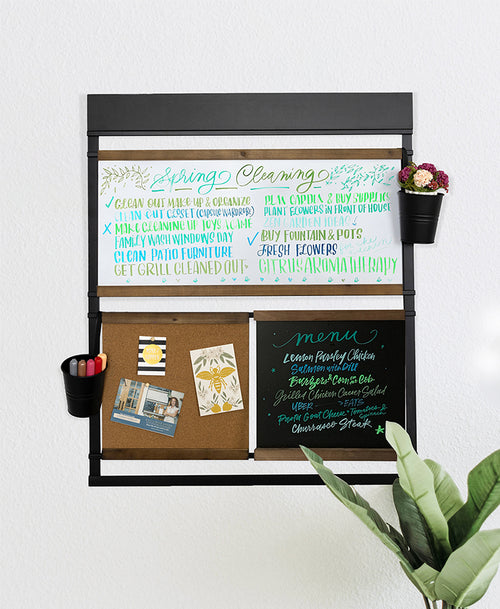 Spring Cleaning
✓ CLEAN OUT MAKE UP & ORGANIZE
CLEAN OUT CLOSET (CAPSULE WARDROBE)
X MAKE CLEANING UP TOYS A GAME
FAMILY WASH WINDOWS DAY
CLEAN PATIO FURNITURE
GET GRILL CLEANED OUT
PLAN GARDEN & BUY SUPPLIES
PLANT FLOWERS IN FRONT OF HOUSE
ZEN GARDEN IDEAS
✓ BUY FOUNTAIN & POTS
FRESH FLOWERS
CITRUS AROMATHERAPY
menu
Lemon Parsley Chicken
Salmon with Dill
Burgers & Corn on the Cob
Grilled Chicken Caesar Salad
UBER EATS
Pasta Goat Cheese & Tomatoes &
Churrasco Steak